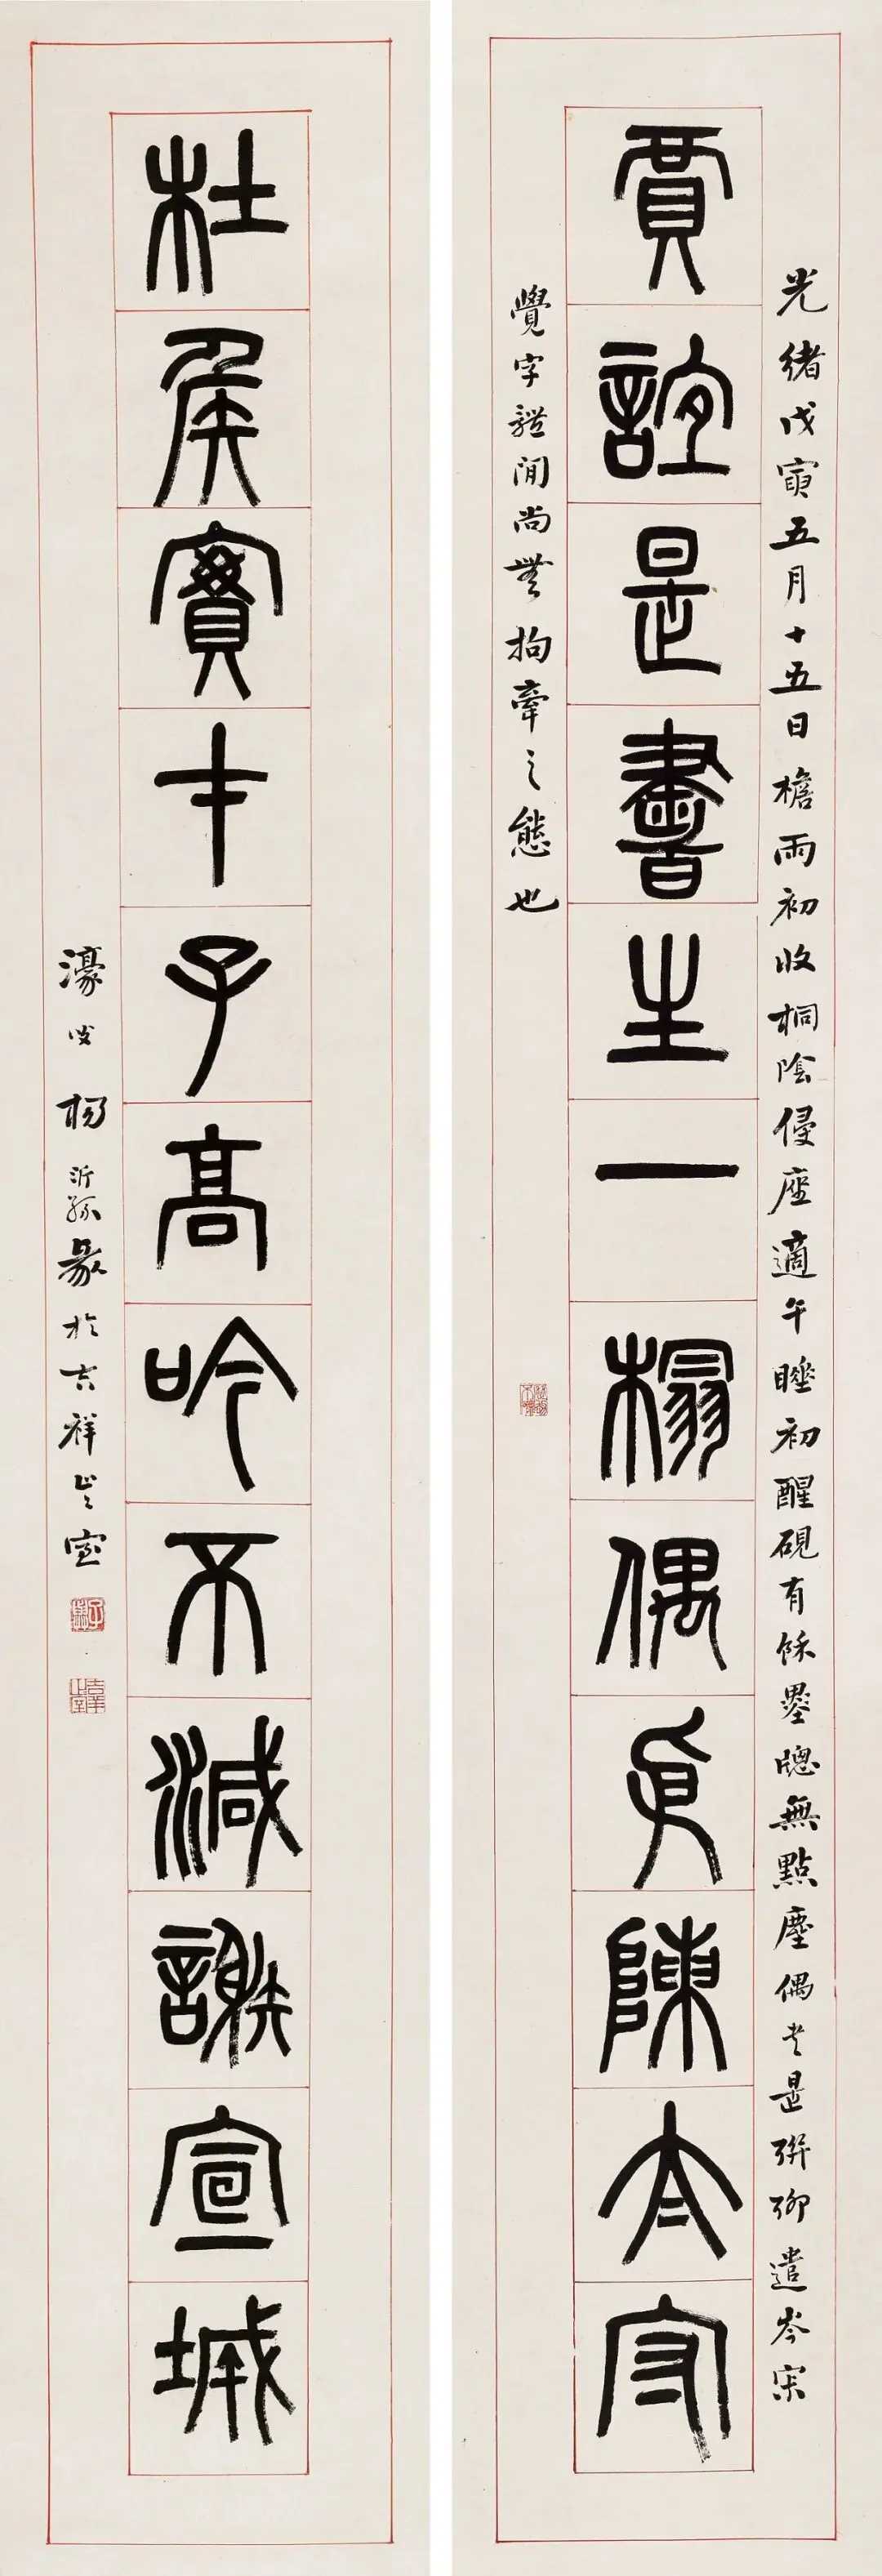 光緒戊寅五月十五日檐雨初收桐陰侵座適午睡初醒硯有餘墨牕無點塵偶書是聯聊遣岑寂
賈誼是書生一榻偶陳太守
覺字體閒尚無拘牽之態也
杜侯實才子高吟不減謝宣城
濠叟楊沂孫篆於吉祥止止室